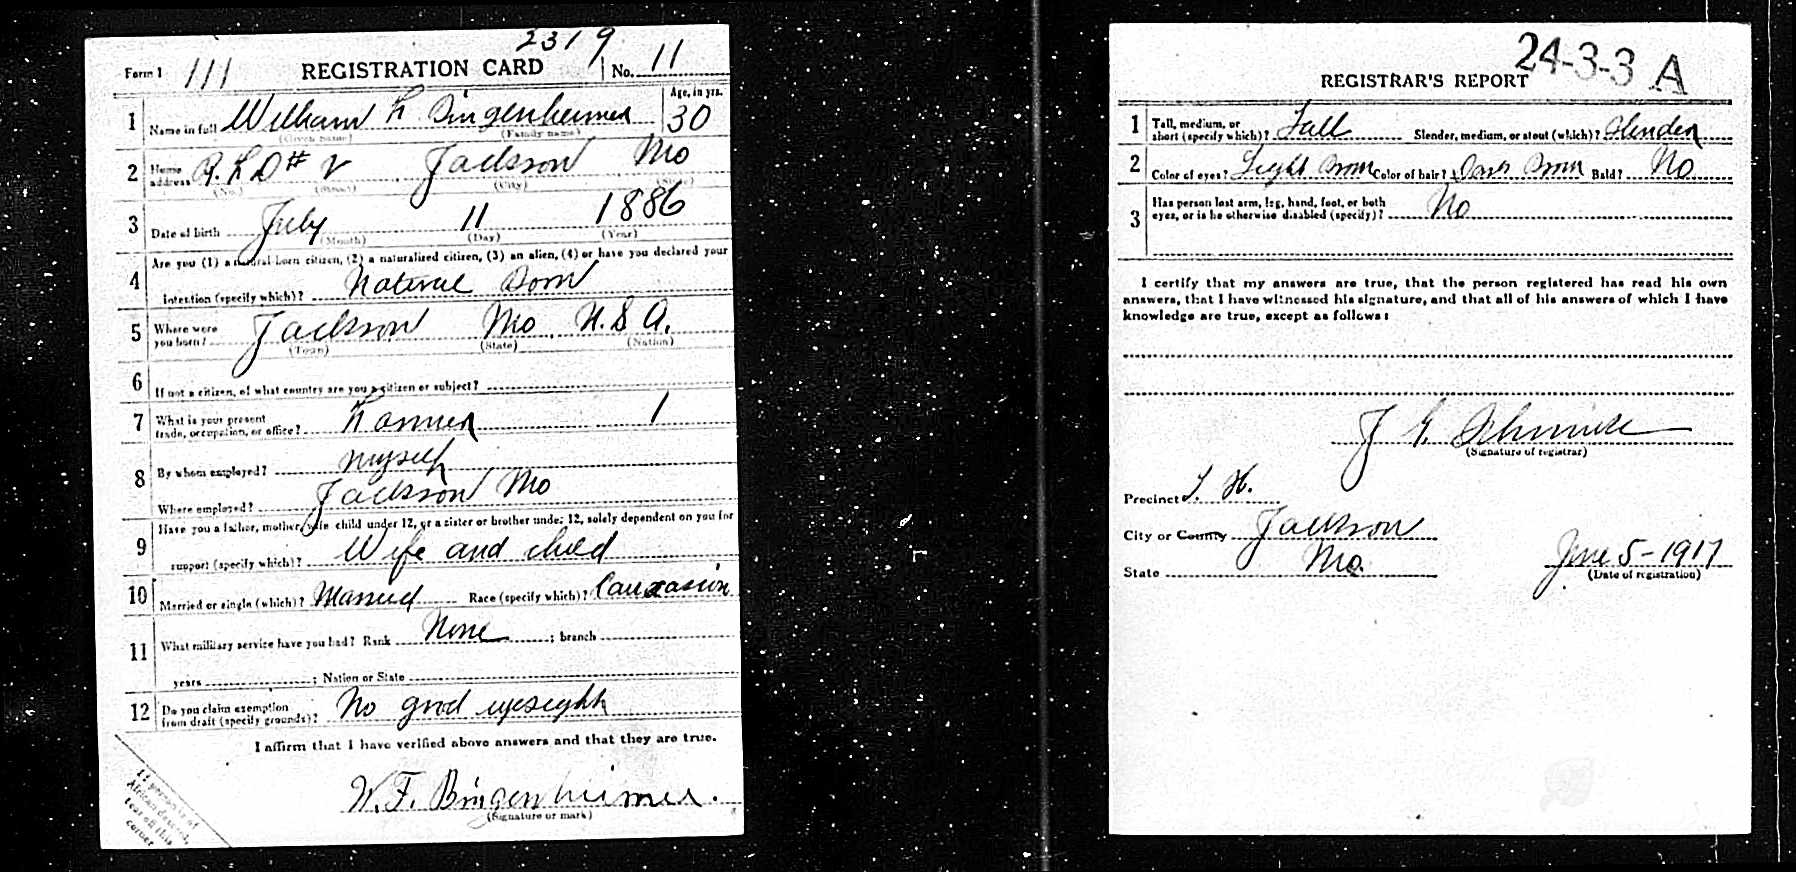 2319
Form 1 111 REGISTRATION CARD No. 11
1 Name in full William F Bingenheimer Age, in yrs. 30
(Given name) (Family name)
2 Home address R.F.D # 2 Jackson Mo
(No.) (Street) (City) (State)
3 Date of birth July 11 1886
(Month) (Day) (Year)
4 Are you (1) a natural-born citizen, (2) a naturalized citizen, (3) an alien, (4) or have you declared your
intention (specify which)? Natural Born
5 Where were you born? Jackson Mo. U.S.A.
(Town) (State) (Nation)
6 If not a citizen, of what country are you a citizen or subject?
7 What is your present trade, occupation, or office? Farmer 1
8 By whom employed? myself
Where employed? Jackson Mo
9 Have you a father, mother, wife child under 12, or a sister or brother under 12, solely dependent on you for
support (specify which)? Wife and child
10 Married or single (which)? Married Race (specify which)? Caucasian
11 What military service have you had? Rank None ; branch
years ; Nation or State
12 Do you claim exemption from draft (specify grounds)? No good eyesight
I affirm that I have verified above answers and that they are true.
W. F. Bingenheimer.
(Signature or mark)
If person is of
African descent,
tear off this
corner
24-3-3 A
REGISTRAR'S REPORT
1 Tall, medium, or short (specify which)? Tall Slender, medium, or stout (which)? Slender
2 Color of eyes? Light Brown Color of hair? Dark Brown Bald? No
3 Has person lost arm, leg, hand, foot, or both
eyes, or is he otherwise disabled (specify)? No
I certify that my answers are true, that the person registered has read his own
answers, that I have witnessed his signature, and that all of his answers of which I have
knowledge are true, except as follows:
J G.
(Signature of registrar)
Precinct
City or County Jackson
State Mo. June 5-1917
(Date of registration)